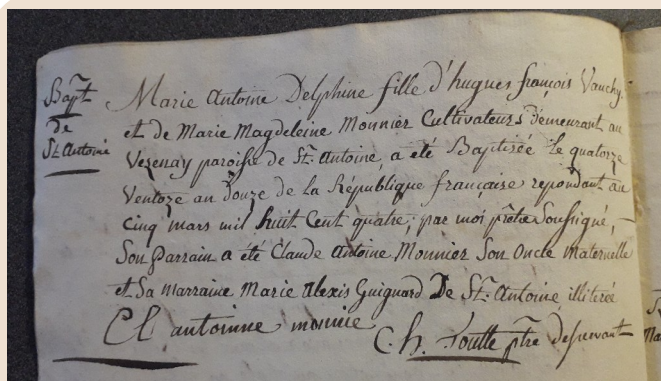 Bapt
De
St Antoine
Marie Antoine Delphine fille d'hugues françois Vauchy.
et de Marie Magdeleine Monnier Cultivateurs demeurant au
Vezenay paroisse de St. Antoine, a été Baptisée le quatorze
Ventoze an douze de la République française repondant au
Cinq mars mil huit Cent quatre; par moi prêtre Soussigné,
Son Parrain a été Claude Antoine Monnier Son Oncle Maternelle
et Sa Marraine Marie Alexis Guignard De St. Antoine illiterée
Cl antoinne monnie
C. h. ptre desservant